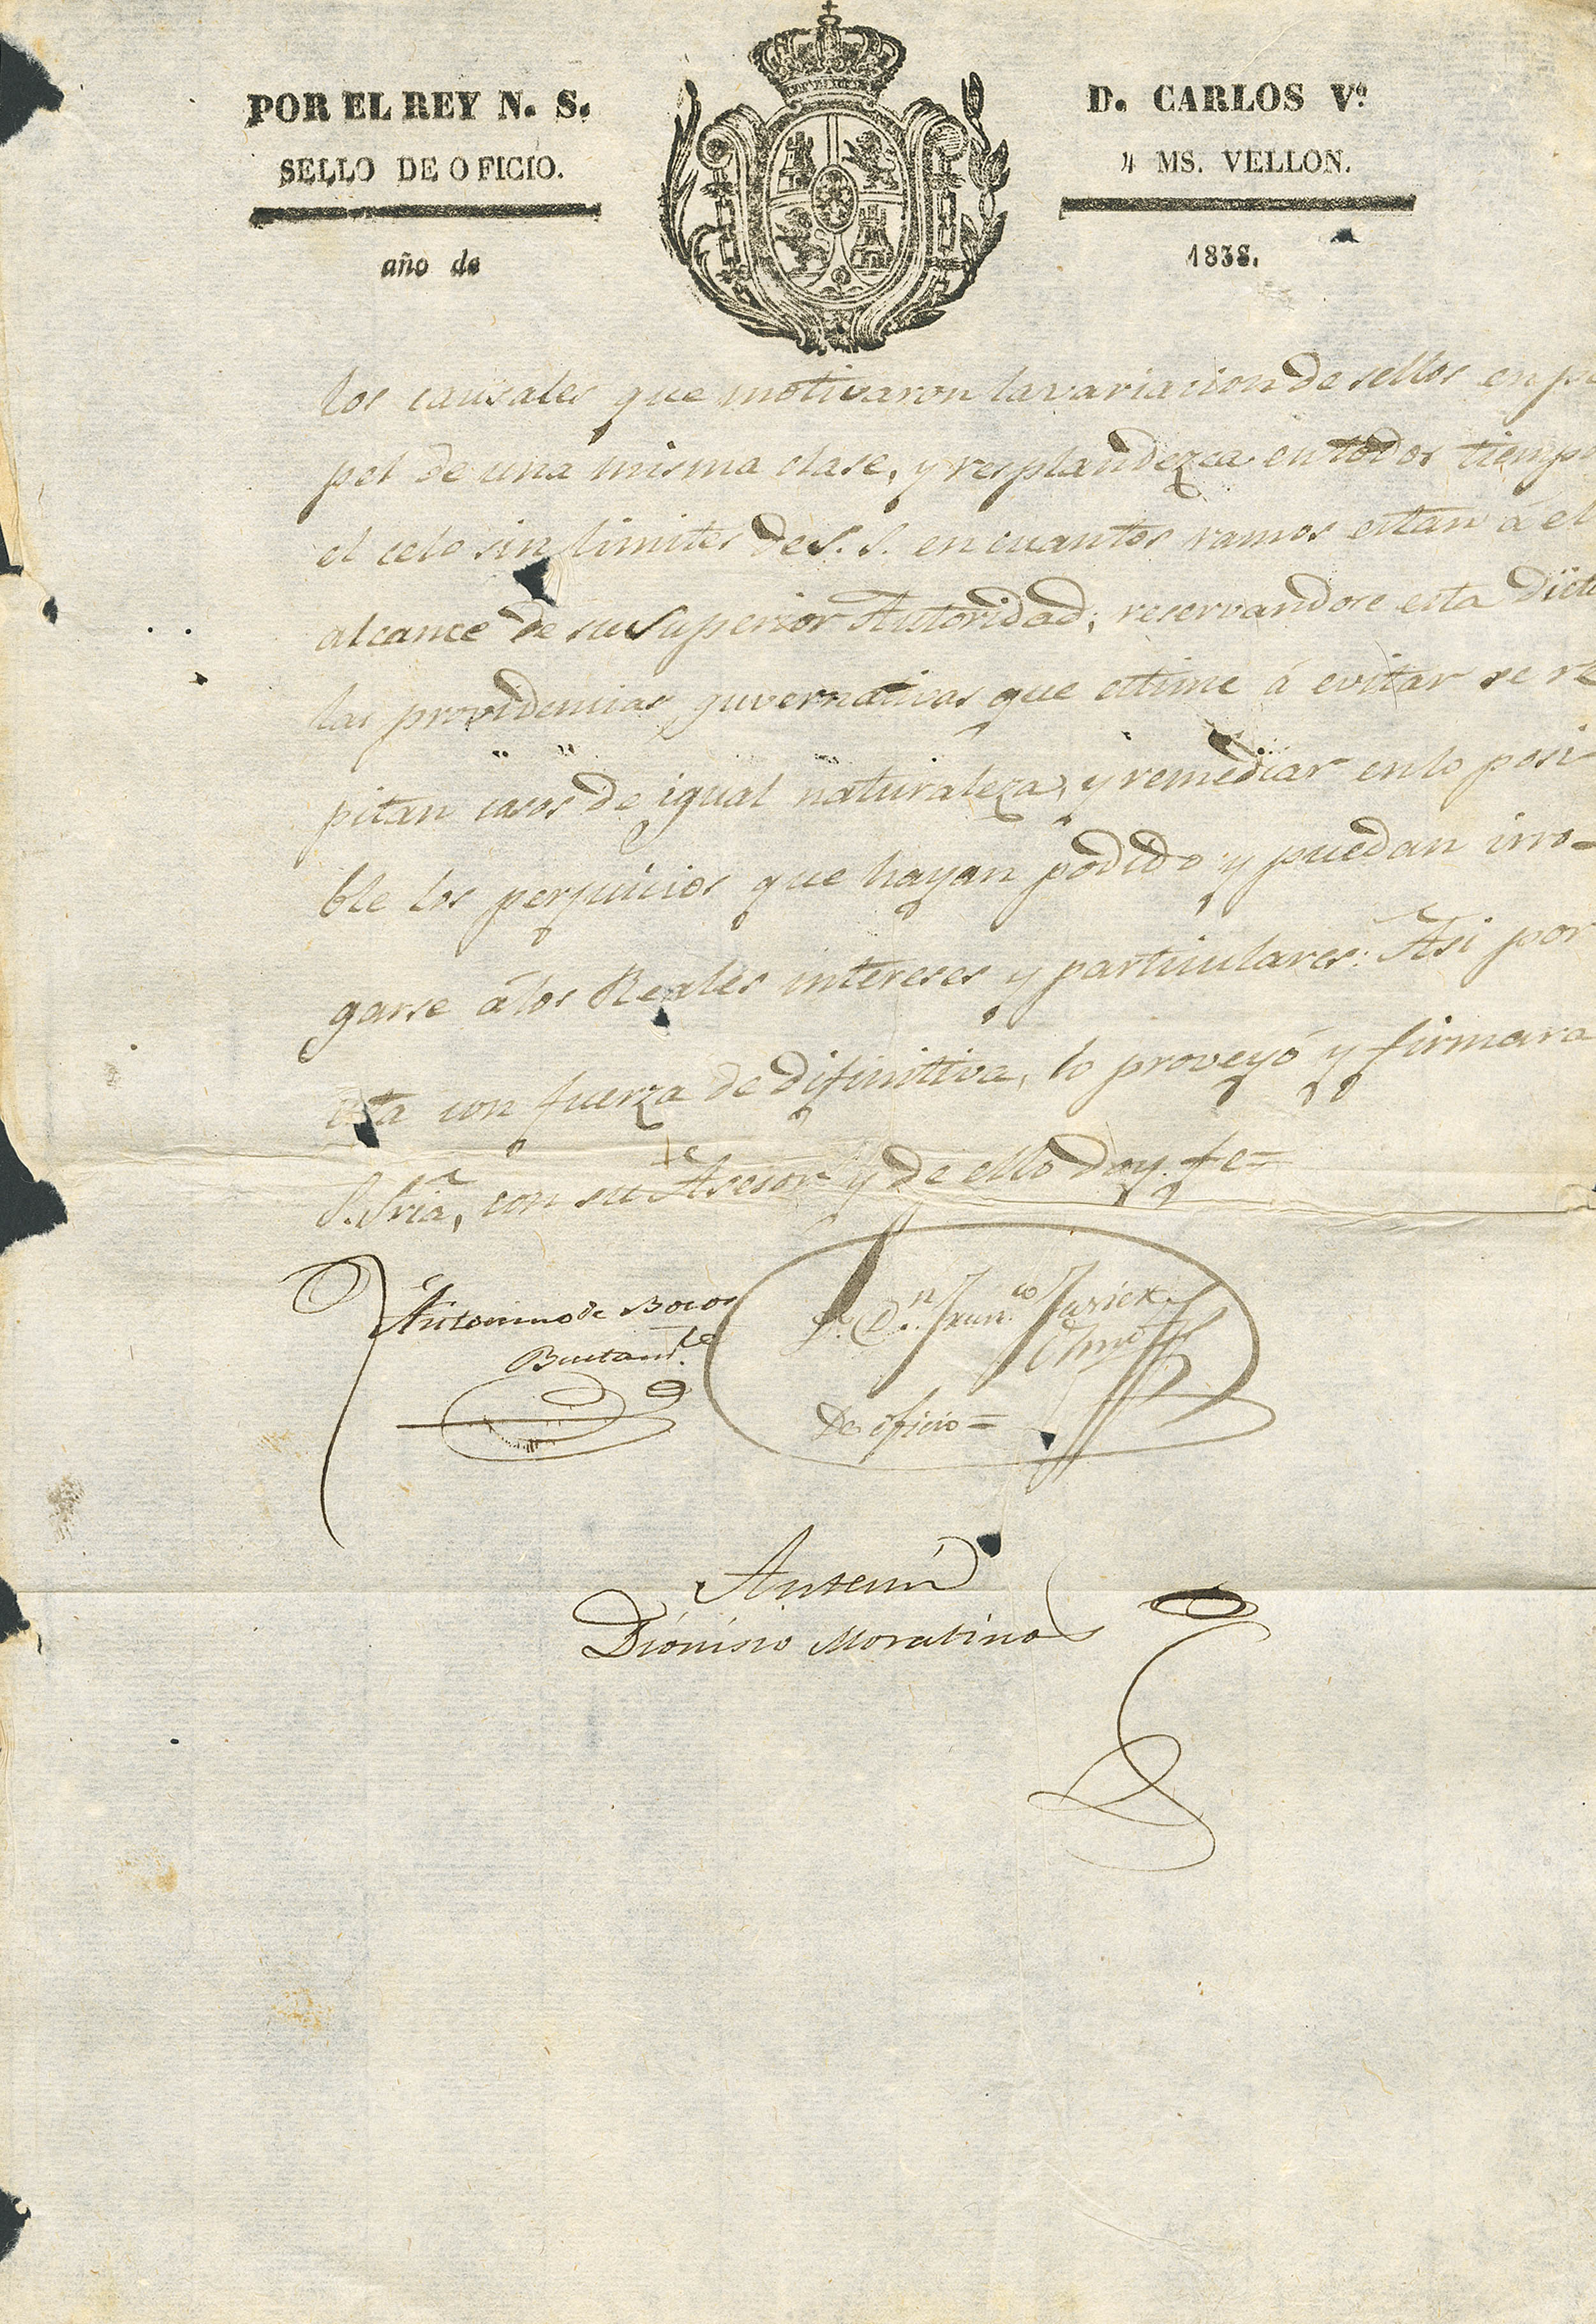 POR EL REY N. S.
D. CARLOS Vº
SELLO DE OFICIO.
4 MS. VELLON.
año de
1838.
los causales que motivaron la variacion de sellos en pa
pel de una misma clase, y resplandezca en todos tiempo
el celo sin limites de S. S. en cuantos ramos estan á el
alcance de su Superior Autoridad; reservandose esta
las providencias guvernativas que estime á evitar se re
pitan casos de igual naturaleza, y remediar en lo posi-
ble los perjuicios que hayan podido y puedan irro-
garse á los Reales intereses y particulares: Asi por
esta con fuerza de difinitiva, lo proveyó y firmara
S. Sria, con su Asesor y de ello doy fe=
Antonino de Bocos
Bustam.te
L. Dn. Franco. Javier
De oficio=
Antemi
Dionisio Moratinos